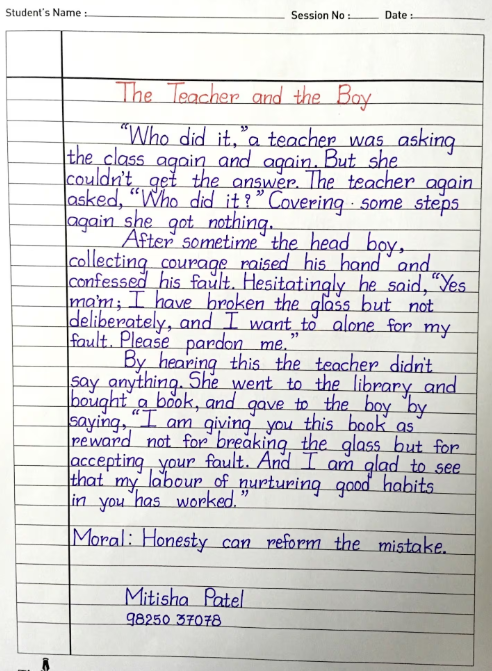 Student's Name :
Session No :
Date :
The Teacher and the Boy
"Who did it," a teacher was asking
the class again and again. But she
couldn't get the answer. The teacher again
asked, "Who did it?" Covering some steps
again she got nothing.
After sometime the head boy,
collecting courage raised his hand and
confessed his fault. Hesitatingly he said, "Yes
ma'm; I have broken the glass but not
deliberately, and I want to alone for my
fault. Please pardon me."
By hearing this the teacher didn't
say anything. She went to the library and
bought a book, and gave to the boy by
saying, "I am giving you this book as
reward not for breaking the glass but for
accepting your fault. And I am glad to see
that my labour of nurturing good habits
in you has worked."
Moral: Honesty can reform the mistake.
Mitisha Patel
98250 37078